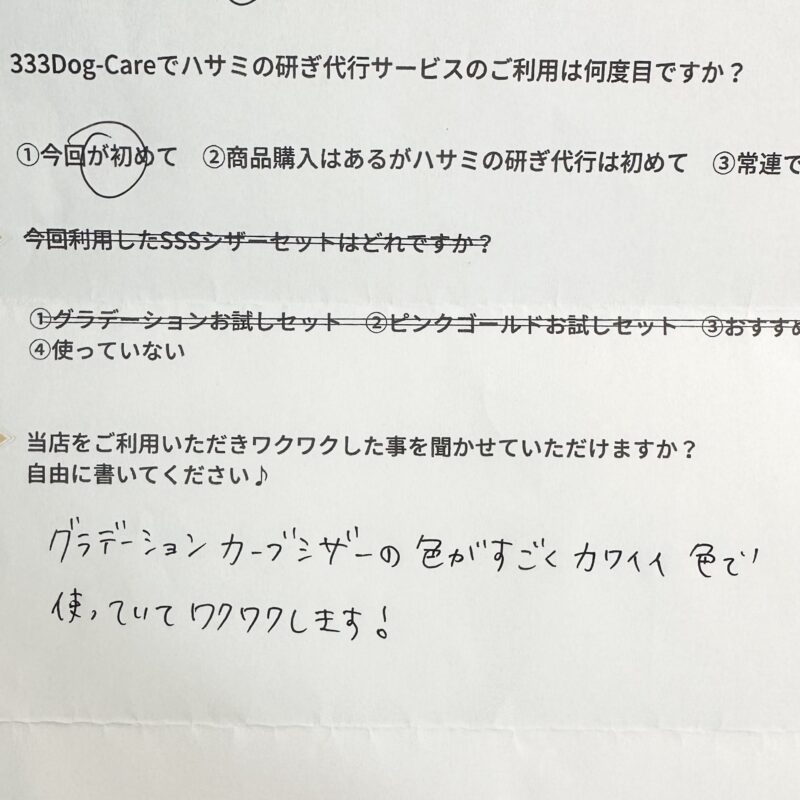 333Dog-Careでハサミの研ぎ代行サービスのご利用は何度目ですか？
①今回が初めて　②商品購入はあるがハサミの研ぎ代行は初めて　③常連で
今回利用したSSSシザーセットはどれですか？
①グラデーションお試しセット　②ピンクゴールドお試しセット　③おすすめ
④使っていない
当店をご利用いただきワクワクした事を聞かせていただけますか？
自由に書いてください♪
グラデーションカーブシザーの色がすごくカワイイ色で
使っていてワクワクします！